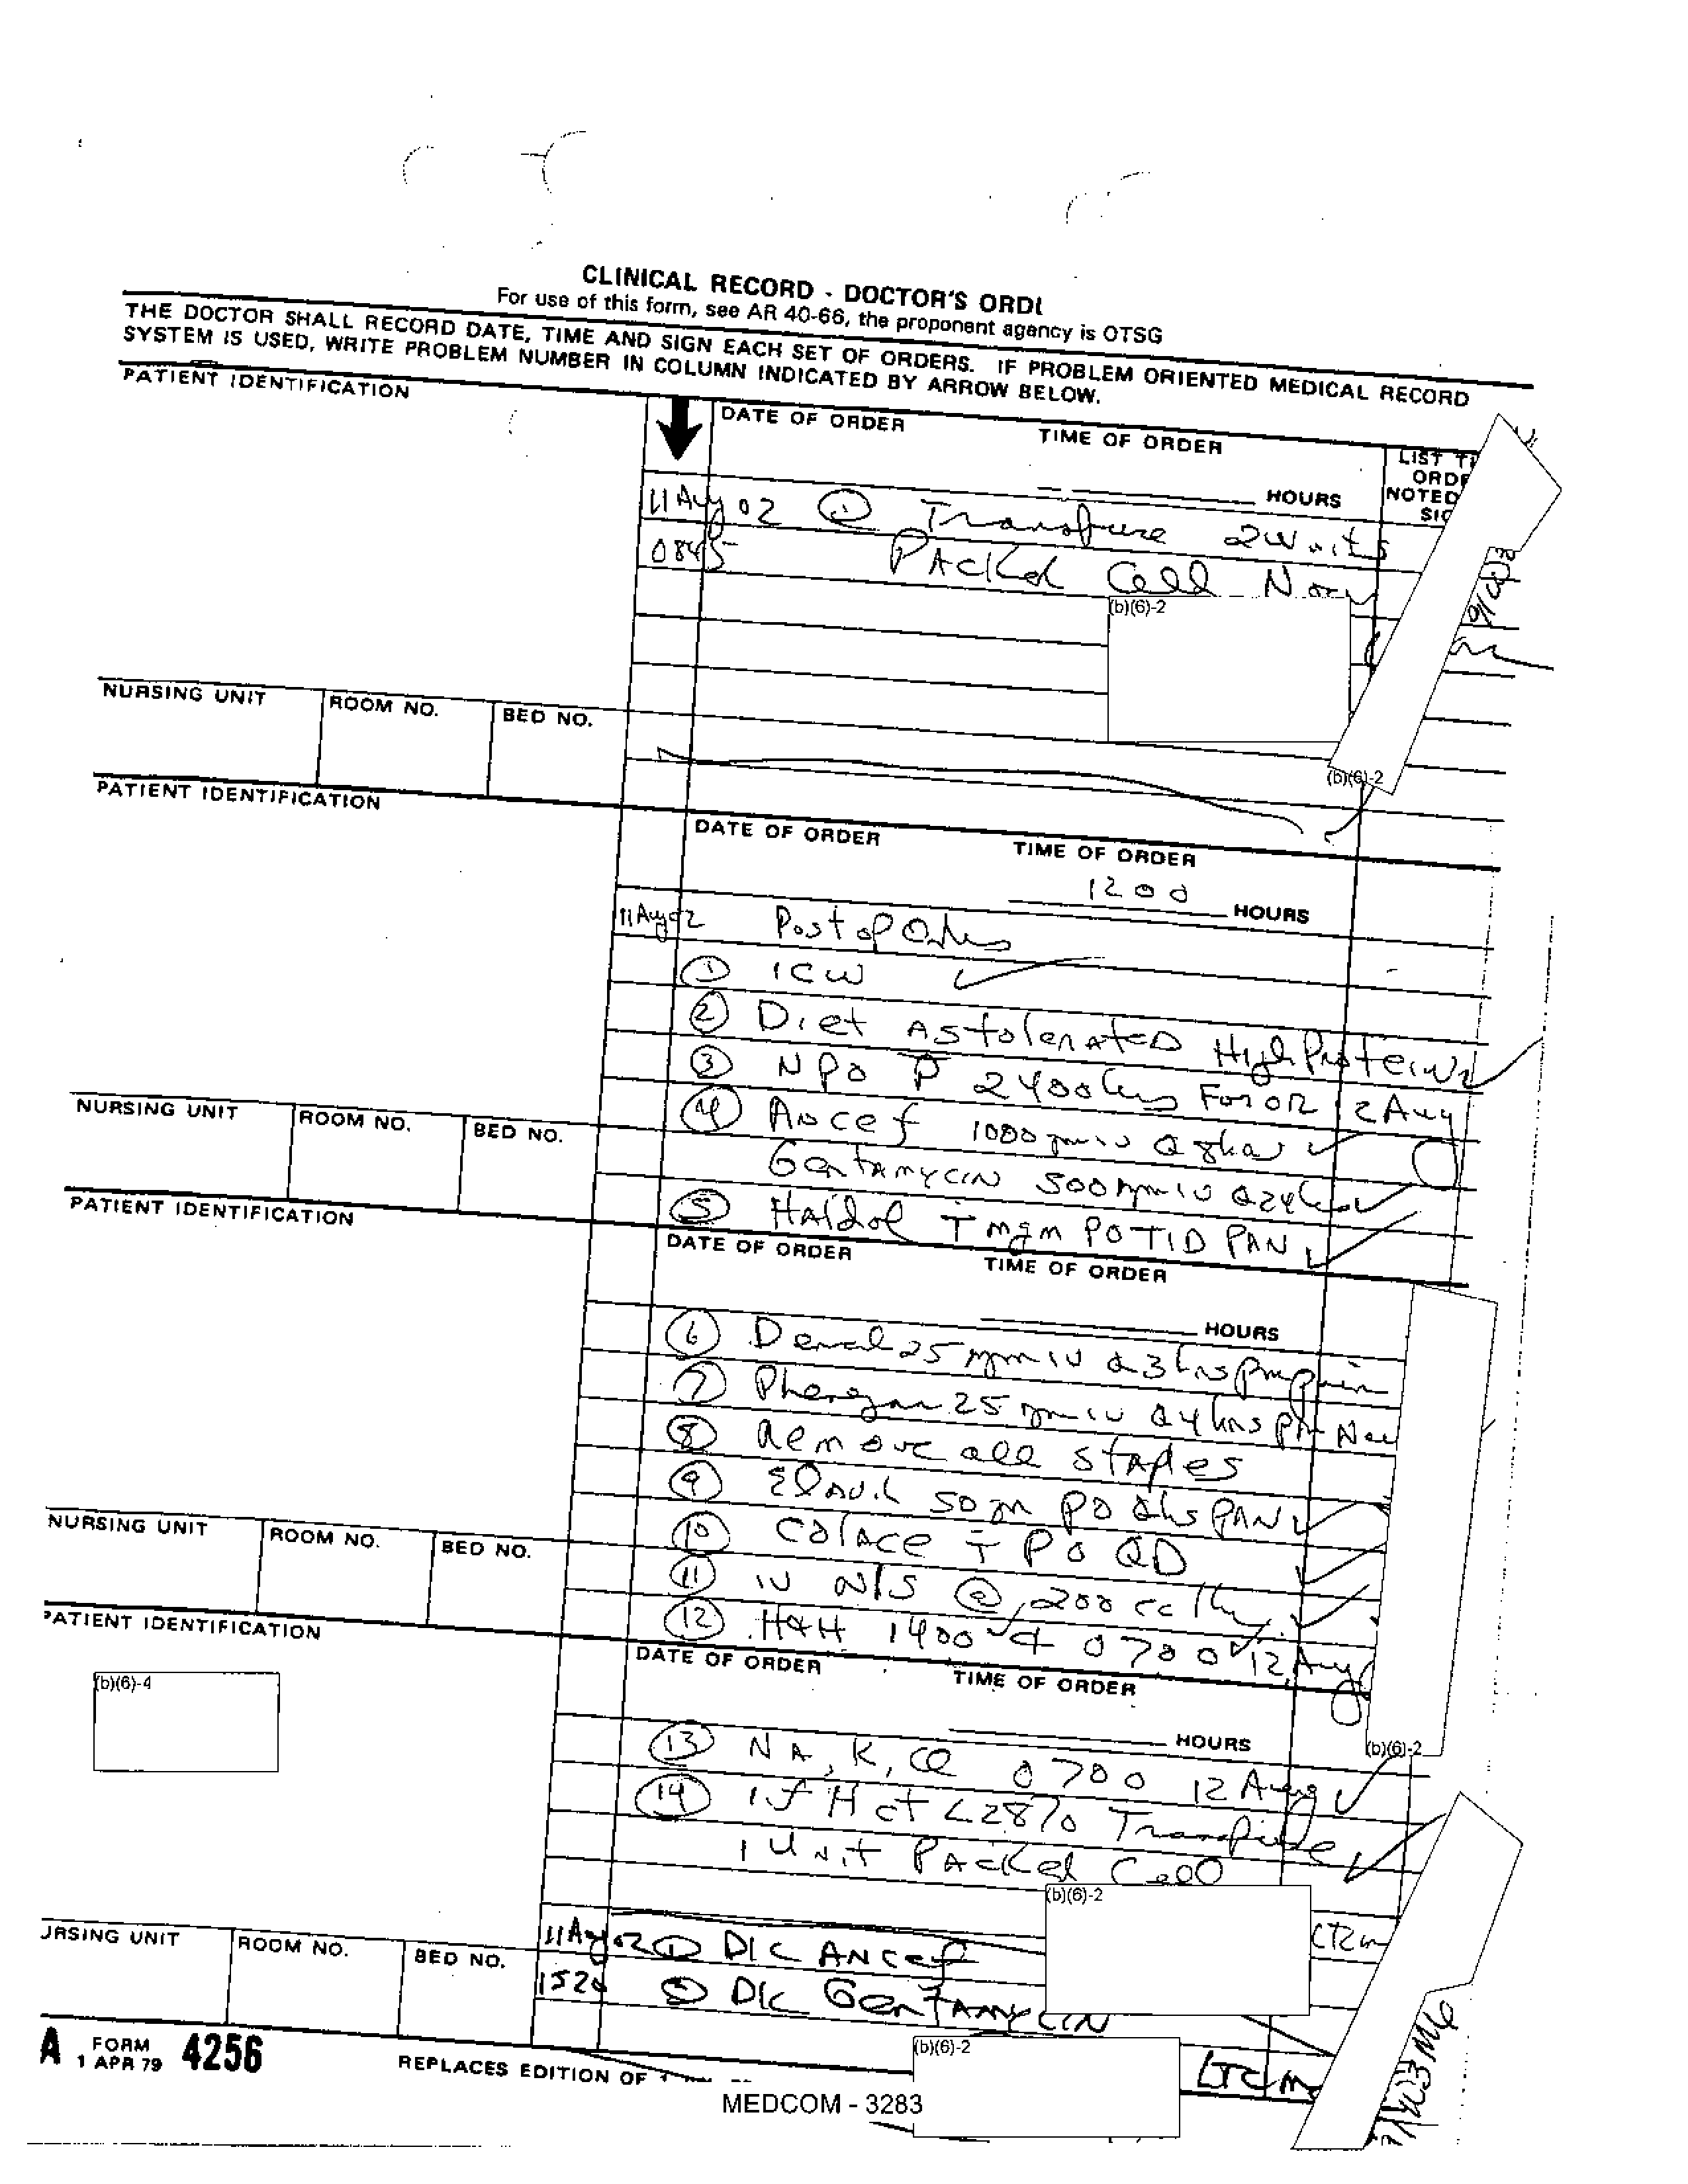 CLINICAL RECORD - DOCTOR'S ORDI
For use of this form, see AR 40-66, the proponent agency is OTSG
THE DOCTOR SHALL RECORD DATE, TIME AND SIGN EACH SET OF ORDERS. IF PROBLEM ORIENTED MEDICAL RECORD
SYSTEM IS USED, WRITE PROBLEM NUMBER IN COLUMN INDICATED BY ARROW BELOW.
PATIENT IDENTIFICATION
DATE OF ORDER TIME OF ORDER
HOURS
LIST TI
ORDE
NOTED
SIG
11 Aug 02 ① Transfuse 2 Units
0845 PAcked Cell Now
(b)(6)-2
NURSING UNIT ROOM NO. BED NO.
(b)(6)-2
PATIENT IDENTIFICATION
DATE OF ORDER TIME OF ORDER
1200 HOURS
11 Aug 02 Post op Orders
① ICW
② Diet As tolerAteD High Protein
③ NPO P 2400 hrs For OR 12 Aug
④ Ancef 1000 gm IV Q 8 hrs
GentAmyciN 500 mgm IV Q 24 hrs
⑤ HAldol T mgm PO TID PRN
NURSING UNIT ROOM NO. BED NO.
PATIENT IDENTIFICATION
DATE OF ORDER TIME OF ORDER
HOURS
⑥ Demerol 25 mgm IV Q 3 hrs prn pain
⑦ Phergan 25 mgm IV Q 4 hrs prn Nau
⑧ Remove all stAples
⑨ ElAvil 50 gm PO Qhs PRN
⑩ ColAce T PO QD
⑪ IV N/S @ 200 cc/hr
⑫ H&H 1400 & 0700 12 Aug
NURSING UNIT ROOM NO. BED NO.
PATIENT IDENTIFICATION
(b)(6)-4
DATE OF ORDER TIME OF ORDER
HOURS
(b)(6)-2
⑬ NA, K, Cl 0700 12 Aug
⑭ If Hct < 28% Transfuse
1 Unit PAcked Cell
(b)(6)-2
11 Aug 02 ① D/C ANcef
1520 ② D/C GentAmyCIN
URSING UNIT ROOM NO. BED NO.
(b)(6)-2
A FORM 1 APR 79 4256
REPLACES EDITION OF
MEDCOM - 3283